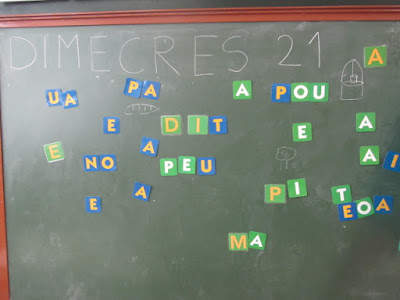 DIMECRES 21
A
UA PA A POU
E DIT E A
E NO A PEU A I
E A PIT T
EOA
MA